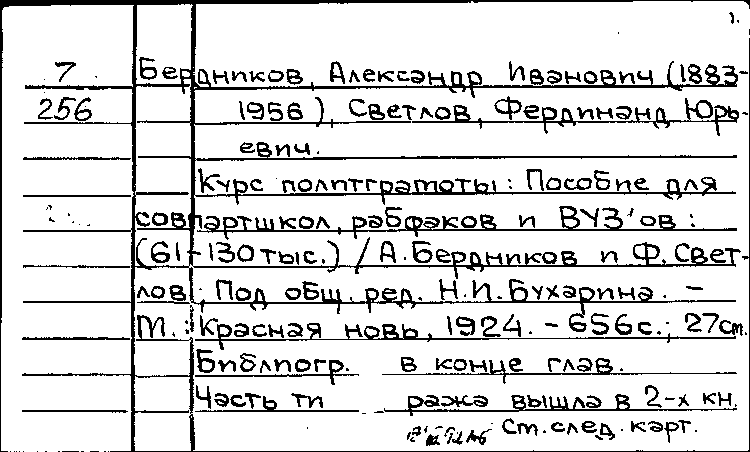 1.
7 Бердников, Александр Иванович (1883-
256 1956), Светлов, Фердинанд Юрь-
евич.
Курс политграмоты: Пособие для
совпартшкол, рабфаков и ВУЗ'ов:
(61-130 тыс.) / А. Бердников и Ф. Свет-
лов; Под общ. ред. Н.И. Бухарина. -
М.: Красная новь, 1924. - 656с.; 27см.
Библиогр. в конце глав.
Часть ти ража вышла в 2-х кн.
См. след. карт.